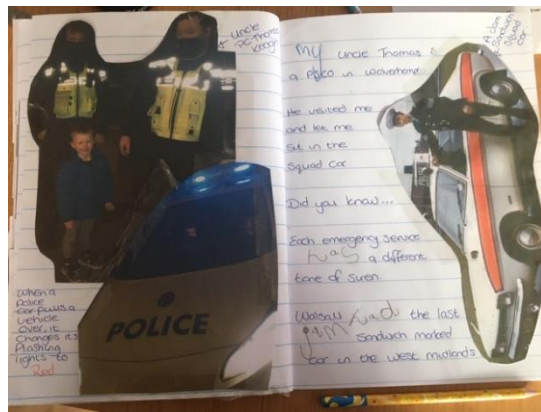 Uncle
PC Thomas
When a
Police
car pulls a
vehicle
over, it
changes it's
flashing
lights to
Red
POLICE
My uncle Thomas is
a in
He visited me
and let me
sit in the
Squad Car.
Did you know...
Each emergency service
has a different
tone of siren.
Walsall had the last
jam Sandwich marked
car in the west midlands
A Jam
Sandwich
Squad
Car